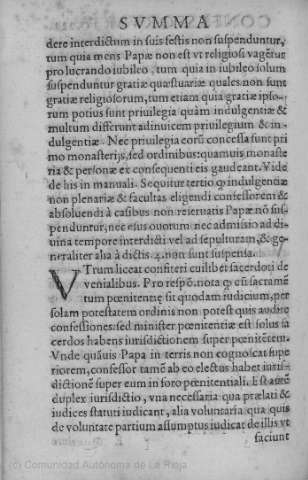 SVMMA
dere interdictum in suis festis non suspenduntur,
tum quia mens Papæ non est vt religiosi vagẽtur
pro lucrando iubileo, tum quia in iubileo solum
suspenduntur gratiæ quæstuariæ quales non sunt
gratiæ religiosorum, tum etiam quia gratiæ ipso-
rum potius sunt priuilegia quàm indulgentiæ &
multum differunt adinuicem priuilegium & in-
dulgentiæ. Nec priuilegia eorũ concessa sunt pri
mo monasterijs, sed ordinibus: quamuis monaste
ria & personæ ex consequenti eis gaudeant. Vide
de his in manuali. Sequitur tertio ꝙ indulgentiæ
non plenariæ & facultas eligendi confessorem &
absoluendi à casibus non reseruatis Papæ nõ sus-
penduntur, nec esus ouorum nec admissio ad di-
uina tempore interdicti vel ad sepulturam, & ge-
neraliter alia à dictis 4. non sunt suspensa.
VTrum liceat confiteri cuilibet sacerdoti de
venialibus. Pro respõ. nota ꝙ cũ sacramẽ
tum pœnitentię sit quodam iudicium, per
solam potestatem ordinis non potest quis audire
confessiones: sed minister pœnitentiæ est solus sa
cerdos habens iurisdictionem super pœnitẽtem.
Vnde quãuis Papa in terris non cognoscat supe
riorem, confessor tamẽ ab eo electus habet iuris-
dictionẽ super eum in foro pœnitentiali. Est autẽ
duplex iurisdictio, vna necessaria qua prælati &
iudices statuti iudicant, alia voluntaria qua quis
de voluntate partium assumptus iudicat de illis vt
faciunt
(c) Comunidad Autónoma de La Rioja